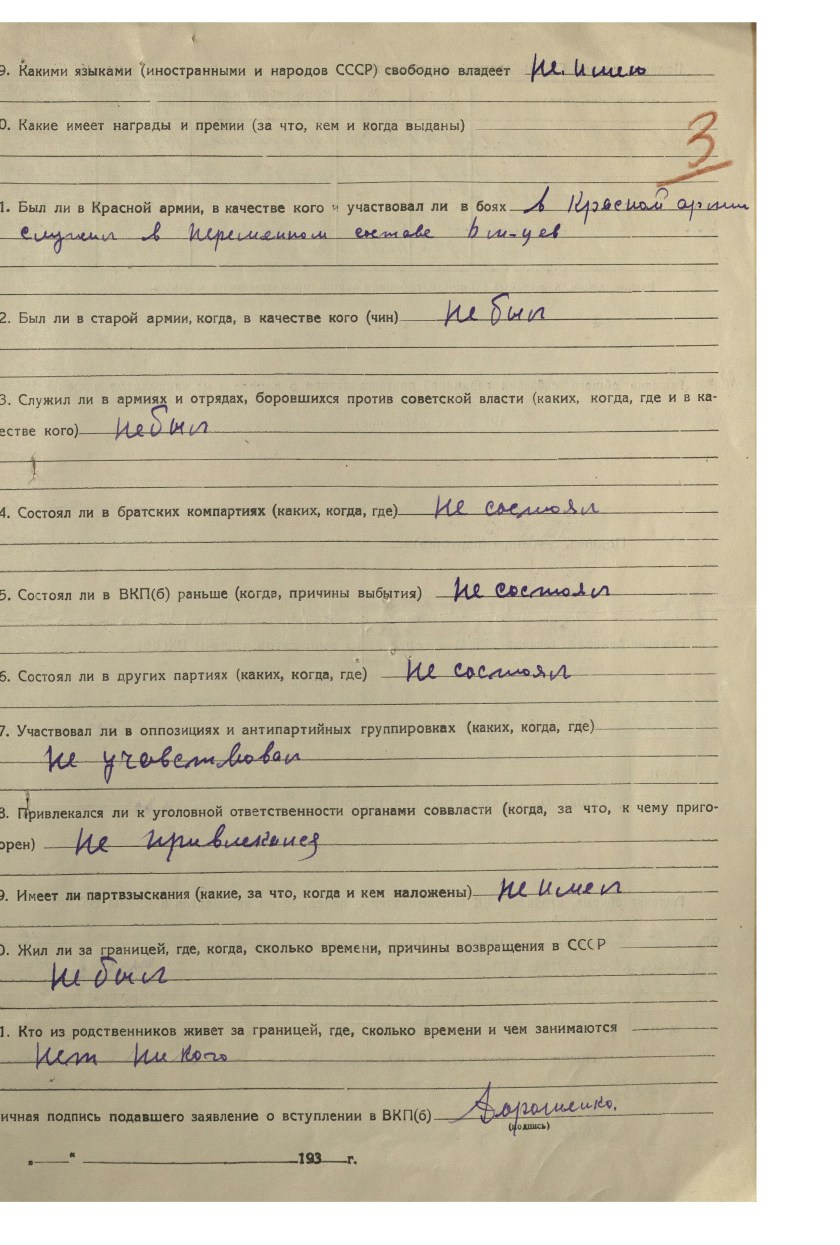 9. Какими языками (иностранными и народов СССР) свободно владеет не имею
0. Какие имеет награды и премии (за что, кем и когда выданы)
3
1. Был ли в Красной армии, в качестве кого и участвовал ли в боях в Красной армии
служил в переменном составе
2. Был ли в старой армии, когда, в качестве кого (чин) не был
3. Служил ли в армиях и отрядах, боровшихся против советской власти (каких, когда, где и в ка-
естве кого) не был
4. Состоял ли в братских компартиях (каких, когда, где) не состоял
5. Состоял ли в ВКП(б) раньше (когда, причины выбытия) не состоял
6. Состоял ли в других партиях (каких, когда, где) не состоял
7. Участвовал ли в оппозициях и антипартийных группировках (каких, когда, где)
не учавствовал
8. Привлекался ли к уголовной ответственности органами соввласти (когда, за что, к чему приго-
орен) не привлекался
9. Имеет ли партвзыскания (какие, за что, когда и кем наложены) не имел
0. Жил ли за границей, где, когда, сколько времени, причины возвращения в СССР
не был
1. Кто из родственников живет за границей, где, сколько времени и чем занимаются
нет ни кого
ичная подпись подавшего заявление о вступлении в ВКП(б) Дорошенко.
(подпись)
„ “ 193 г.